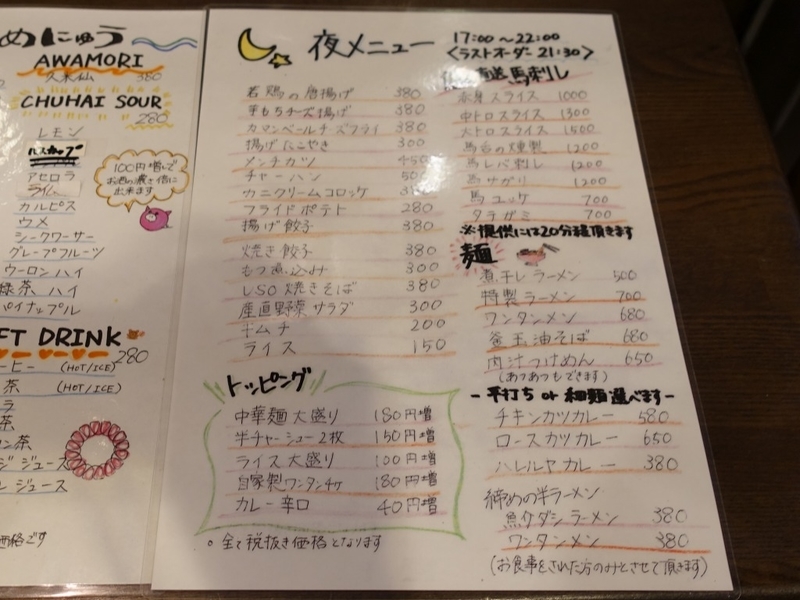 めにゅう
AWAMORI
久米仙 380
CHUHAI SOUR
280
レモン
アセロラ
ライム
カルピス
ウメ
シークワーサー
グレープフルーツ
ウーロンハイ
緑茶ハイ
パイナップル
100円増しで
お酒の濃さ倍に
出来ます
FT DRINK
280
ーヒー (HOT/ICE)
茶 (HOT/ICE)
ラ
茶
ン茶
ジジュース
ンジュース
価格です
夜メニュー
17:00～22:00
<ラストオーダー 21:30>
若鶏の唐揚げ 380
芋もちチーズ揚げ 380
カマンベールチーズフライ 380
揚げたこやき 300
メンチカツ 450
チャーハン
カニクリームコロッケ
フライドポテト 280
揚げ餃子 380
焼き餃子 380
もつ煮込み 300
LSO焼きそば 380
産直野菜サラダ 300
キムチ 200
ライス 150
トッピング
中華麺大盛り 180円増
半チャーシュー2枚 150円増
ライス大盛り 100円増
自家製ワンタン4ヶ 180円増
カレー辛口 40円増
○全て税抜き価格となります
直送馬刺し
赤身スライス 1000
中トロスライス 1300
大トロスライス 1500
馬の燻製 1200
馬レバ刺し 1200
馬サガリ 1200
馬ユッケ 700
タテガミ 700
※提供には20分程頂きます
麺
煮干しラーメン 500
特製ラーメン 700
ワンタンメン 680
釜玉油そば 680
肉汁つけめん 650
(あつあつもできます)
-平打ち or 細麺選べます-
チキンカツカレー 580
ロースカツカレー 650
ハレルヤカレー 380
締めの半ラーメン
魚介ダシラーメン 380
ワンタンメン 380
(お食事をされた方のみとさせて頂きます)